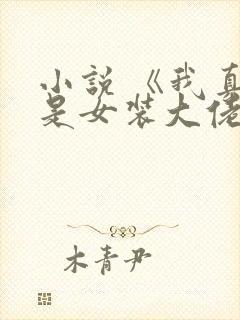 小说《我真
是女装大佬
木青尹